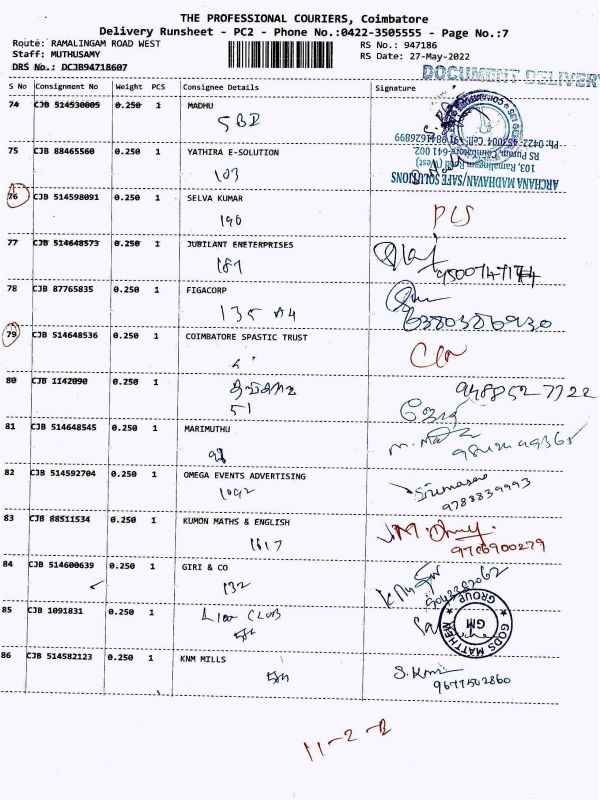 THE PROFESSIONAL COURIERS, Coimbatore
Delivery Runsheet - PC2 - Phone No.:0422-3505555 - Page No.:7
Route: RAMALINGAM ROAD WEST RS No.: 947186
Staff: MUTHUSAMY RS Date: 27-May-2022
DRS No.: DCJB94718607
DOCUMENT DELIVERY
S No Consignment No Weight PCS Consignee Details Signature
74 CJB 514530005 0.250 1 MADHU
SBI
Ph: 0422-
75 CJB 88465560 0.250 1 YATHIRA E-SOLUTION
RS Puram, Coimbatore-641 002
103, Ramalingam Road (West)
103
ARCHANA MADHAVAN/SAFE SOLUTIONS
76 CJB 514598091 0.250 1 SELVA KUMAR
190
77 CJB 514648573 0.250 1 JUBILANT ENETERPRISES
187
78 CJB 87765835 0.250 1 FIGACORP
135 A4
6380386930
79 CJB 514648536 0.250 1 COIMBATORE SPASTIC TRUST
80 CJB 1142090 0.250 1
9488527722
51
81 CJB 514648545 0.250 1 MARIMUTHU
82 CJB 514592704 0.250 1 OMEGA EVENTS ADVERTISING
1092
9788839993
83 CJB 88511534 0.250 1 KUMON MATHS & ENGLISH
1617
9786900279
84 CJB 514600639 0.250 1 GIRI & CO
132
85 CJB 1091831 0.250 1 Lion CLUB
GODS MATTHEW GROUP
GM
86 CJB 514582123 0.250 1 KNM MILLS
9677502860
11-2-2